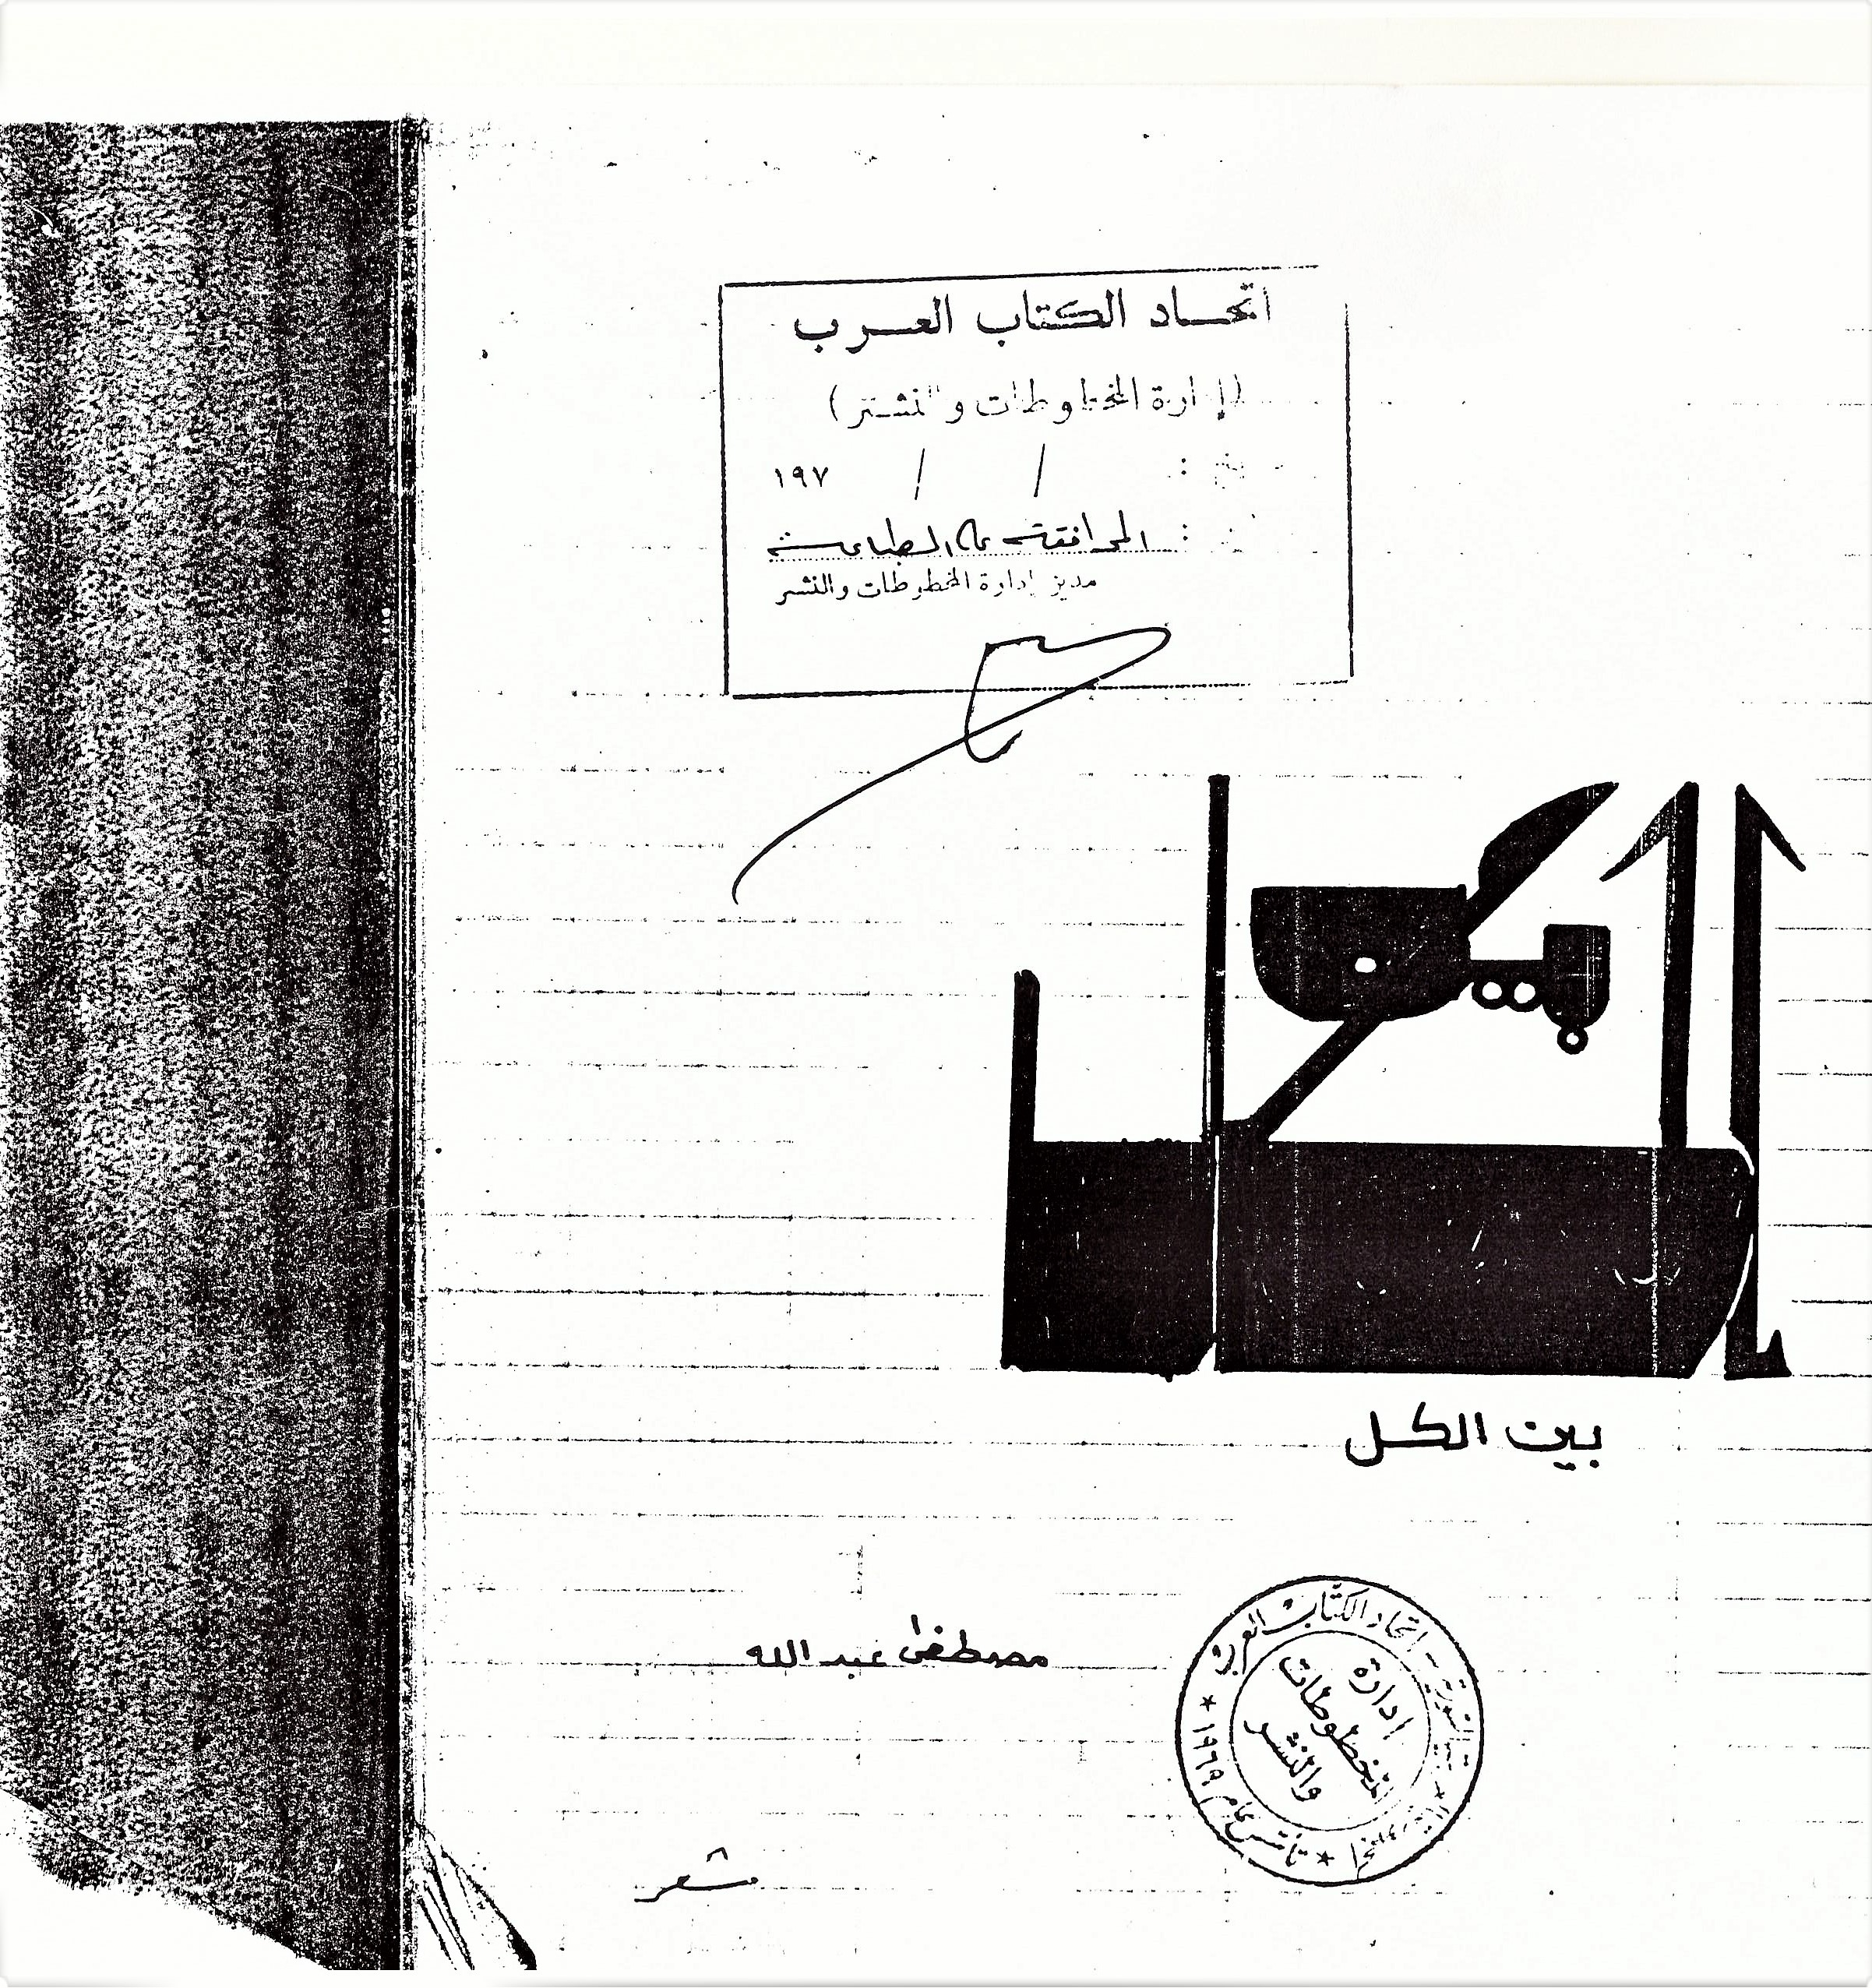 اتحاد الكتاب العرب
(إدارة المخطوطات والنشر)
: / / ١٩٧
: الموافقة على الطباعة
مدير إدارة المخطوطات والنشر
بيت الكل
مصطفى عبد الله
اتحاد الكتّاب العرب
تأسس عام ١٩٦٩
إدارة
المخطوطات
والنشر
شعر